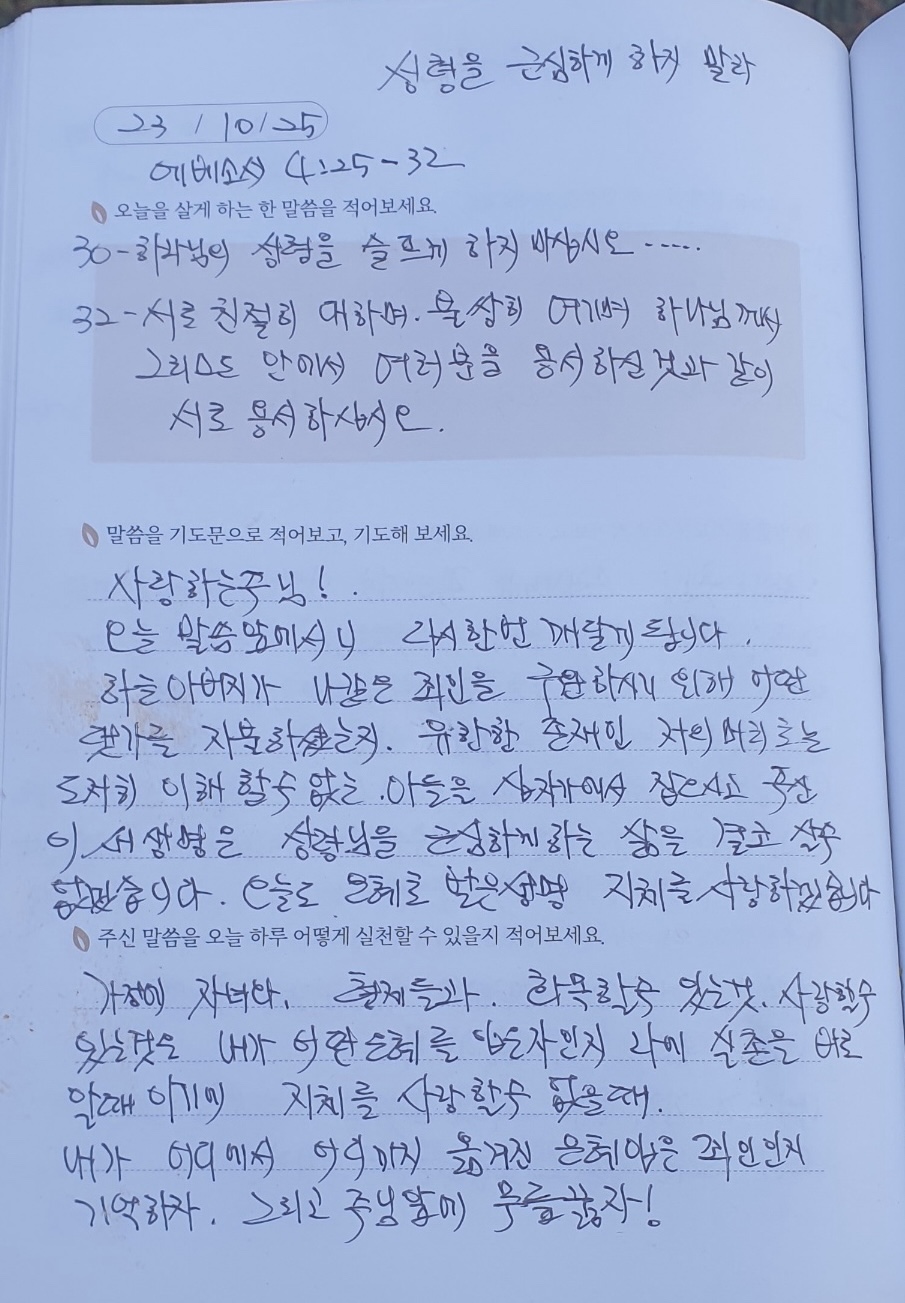 성령을 근심하게 하지 말라
23 / 10 / 25
에베소서 4:25-32
오늘을 살게 하는 한 말씀을 적어보세요.
30-하나님의 성령을 슬프게 하지 마십시오 .....
32-서로 친절히 대하며. 불쌍히 여기며 하나님께서
그리스도 안에서 여러분을 용서하신 것과 같이
서로 용서하십시오.
말씀을 기도문으로 적어보고, 기도해 보세요.
사랑하는주님!.
오늘 말씀앞에서니 다시한번 깨달게 됩니다.
하늘아버지가 나같은 죄인을 구원하시기 위해 어떤
댓가를 지불하셨는지. 유한한 존재인 저의머리로는
도저히 이해 할수 없는. 아들을 십자가에서 찢으시고 주신
이 새생명은 성령님을 근심하게하는 삶을 결코 살수
없겠습니다. 오늘도 은혜로 받은생명 지체를 사랑하겠습니다
주신 말씀을 오늘 하루 어떻게 실천할 수 있을지 적어보세요.
가정에 자녀와. 형제들과. 화목할수 있는것. 사랑할수
있는것은 내가 어떤은혜를 입은자인지 나에 실존을 바로
알때 이기에 지체를 사랑할수 없을때.
내가 어디에서 어디까지 옮겨진 은혜입은 죄인인지
기억하자. 그리고 주님앞에 무릎꿇자!